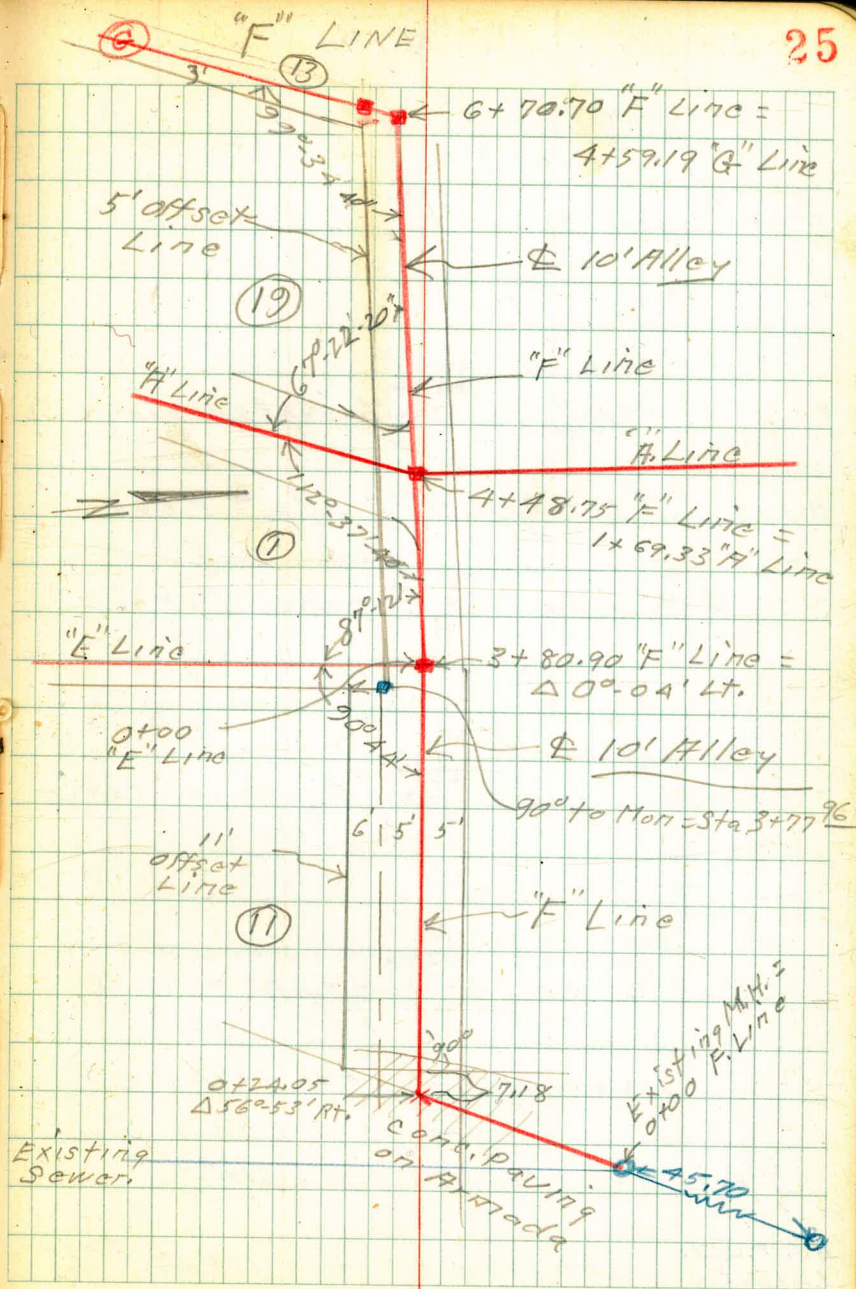 "F" LINE
25
G
13
3'
6+70.70 "F" Line =
4+59.19 "G" Line
99°-34'-40"
5' Offset
Line
℄ 10' Alley
19
67°-22'-20"
"F" Line
"A" Line
"A" Line
4+48.75 "F" Line =
1+69.33 "A" Line
112°-37'-40"
1
87°-12'
"E" Line
3+80.90 "F" Line =
Δ 0°-04' Lt.
0+00
"E" Line
90°44'
℄ 10' Alley
90° to Mon = Sta 3+77 96
6' 5' 5'
11'
offset
Line
11
"F" Line
Existing M.H. =
0+00 F. Line
90°
7.18
0+24.05
Δ 56°-53' Rt.
Conc. paving
on Armada
Existing
Sewer.
45.70